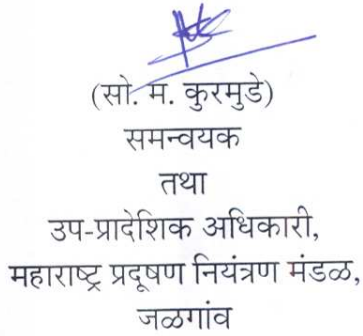 (सो. म. कुरमुडे)
समन्वयक
तथा
उप-प्रादेशिक अधिकारी,
महाराष्ट्र प्रदूषण नियंत्रण मंडळ,
जळगांव